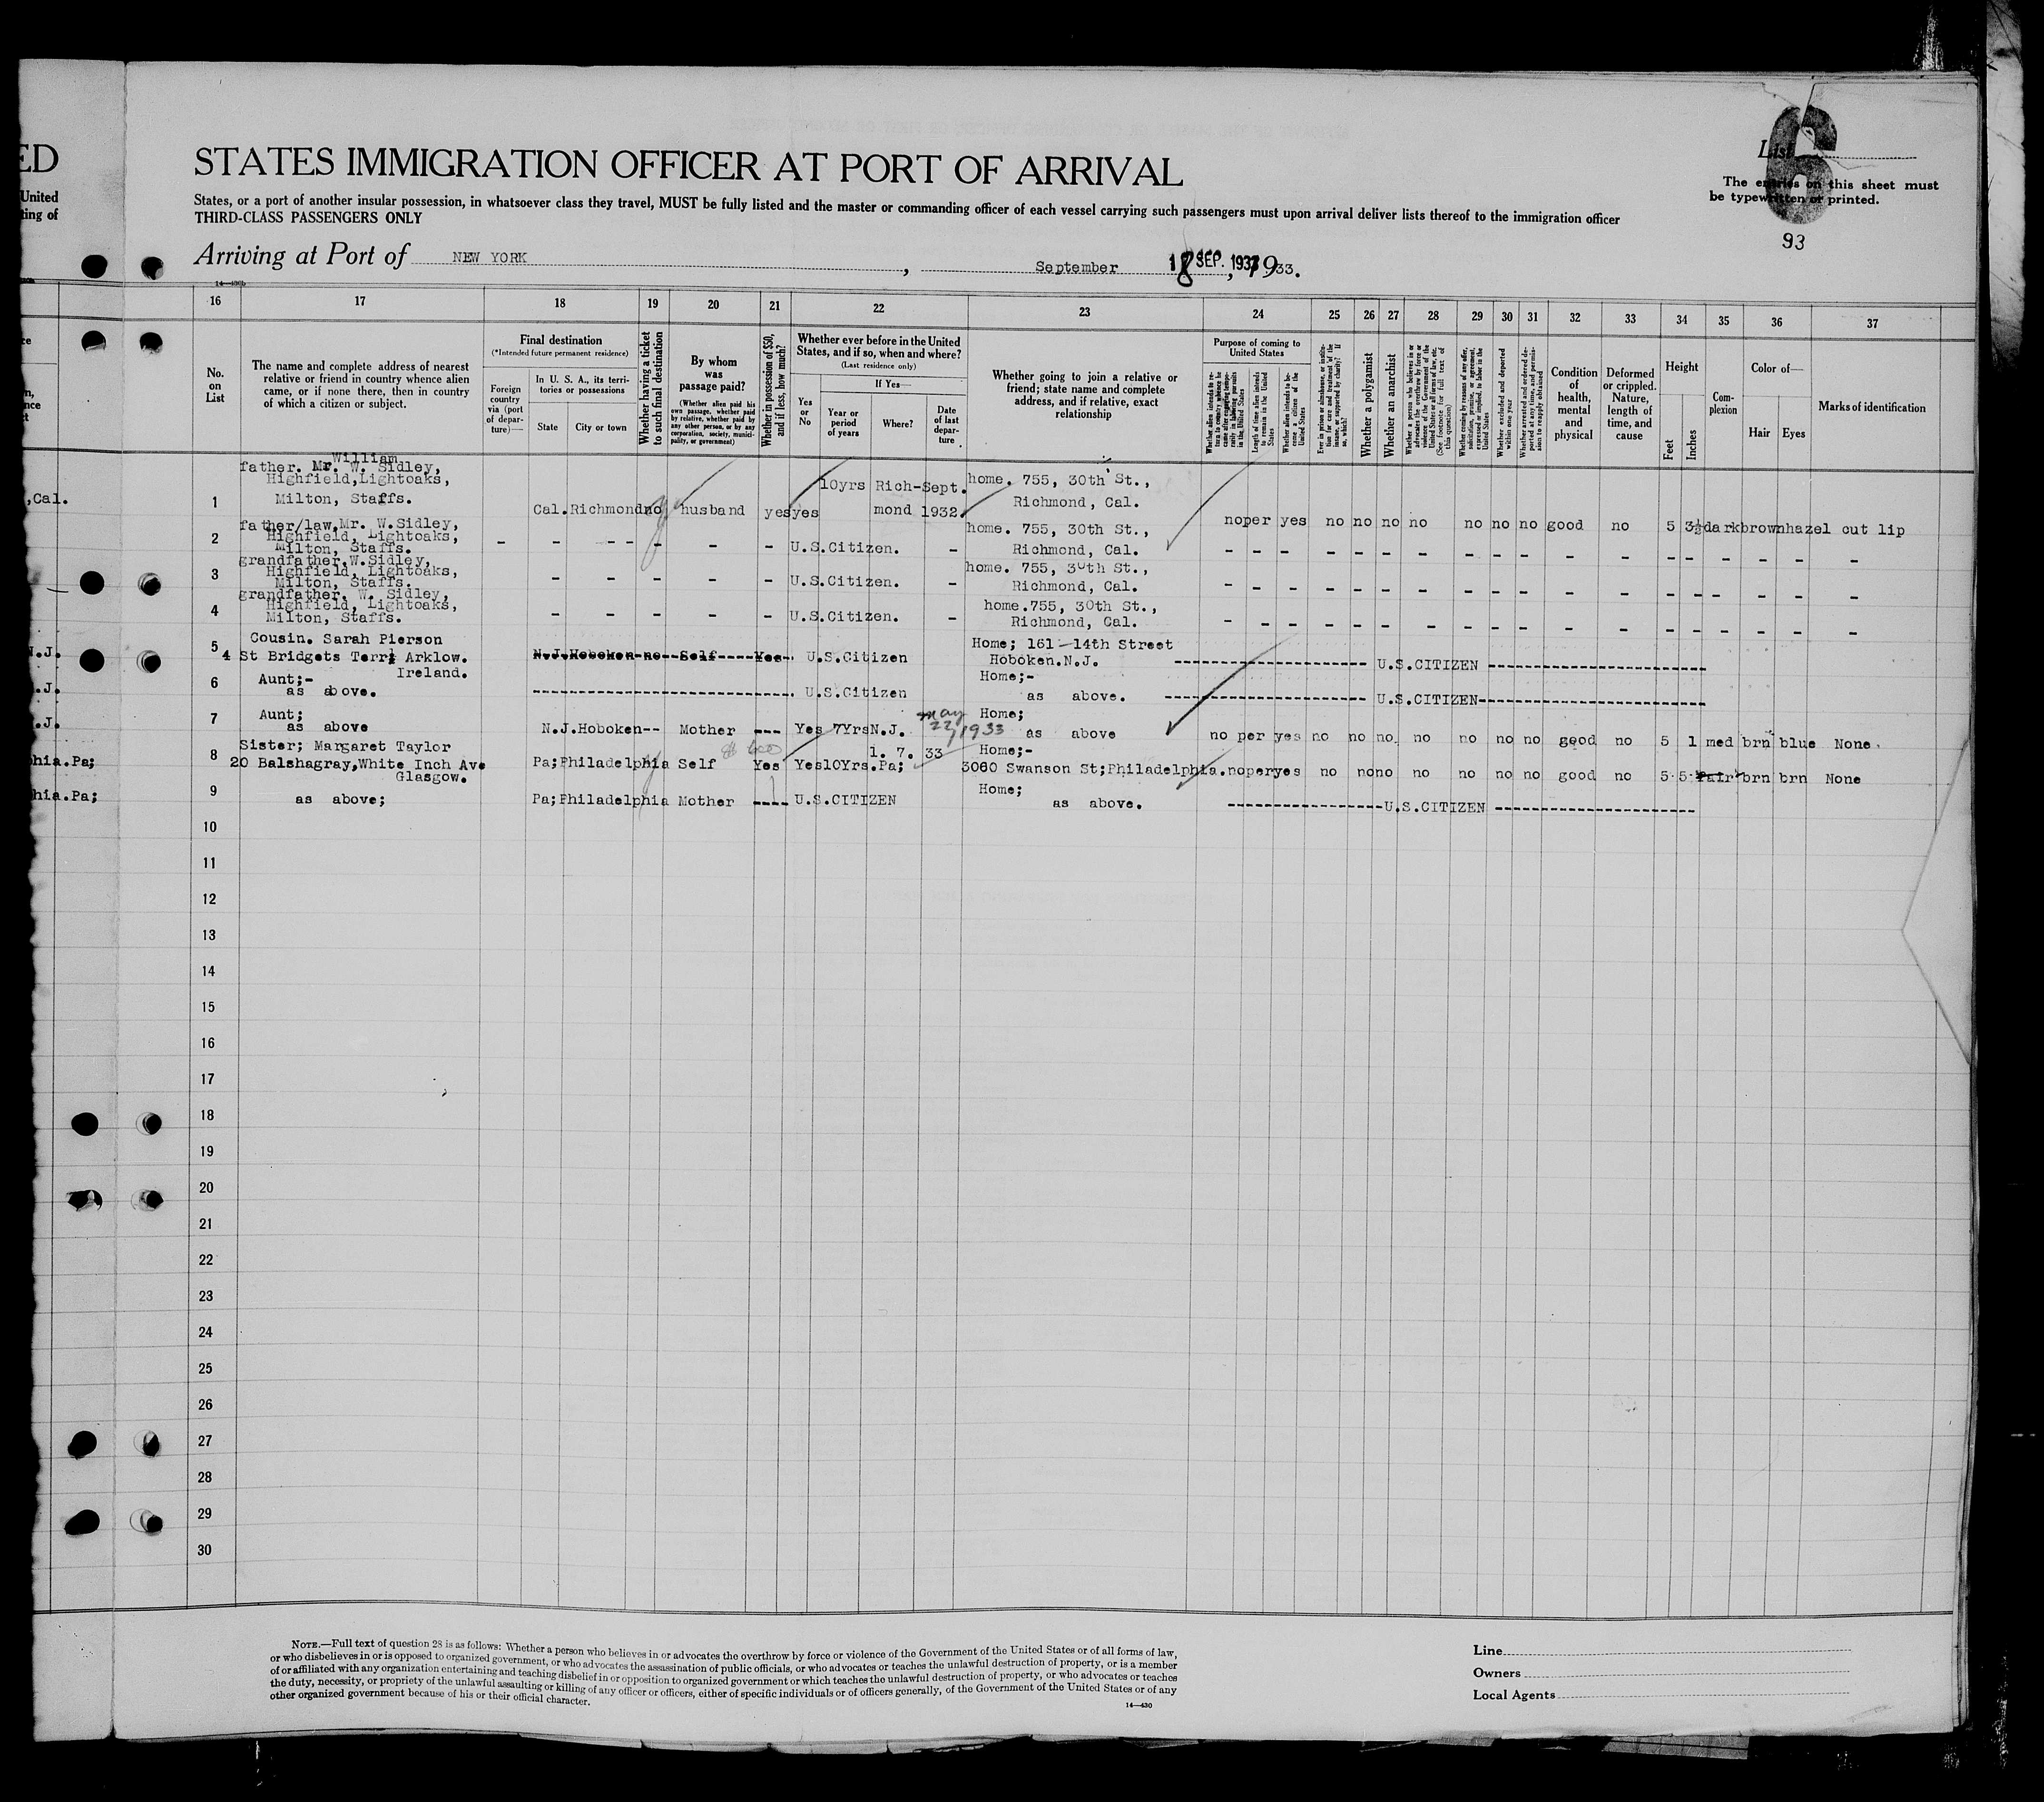 ED
United
ing of
STATES IMMIGRATION OFFICER AT PORT OF ARRIVAL
List
6
The entries on this sheet must
be typewritten or printed.
93
States, or a port of another insular possession, in whatsoever class they travel, MUST be fully listed and the master or commanding officer of each vessel carrying such passengers must upon arrival deliver lists thereof to the immigration officer
THIRD-CLASS PASSENGERS ONLY
Arriving at Port of NEW YORK, September 18 SEP. 1933, 1933.
16 17 18 19 20 21 22 23 24 25 26 27 28 29 30 31 32 33 34 35 36 37
No. on List
The name and complete address of nearest
relative or friend in country whence alien
came, or if none there, then in country
of which a citizen or subject.
Final destination
(*Intended future permanent residence)
Foreign country via (port of departure)—
In U. S. A., its territories or possessions
State
City or town
Whether having a ticket to such final destination
By whom was passage paid?
(Whether alien paid his own passage, whether paid by relative, whether paid by any other person, or by any corporation, society, municipality, or government)
Whether in possession of $50, and if less, how much?
Whether ever before in the United States, and if so, when and where?
(Last residence only)
Yes or No
If Yes—
Year or period of years
Where?
Date of last departure
Whether going to join a relative or
friend; state name and complete
address, and if relative, exact
relationship
Purpose of coming to United States
Length of time alien intends to remain in the United States
Whether alien intends to become a citizen of the United States
Whether a polygamist
Whether an anarchist
Condition of health, mental and physical
Deformed or crippled. Nature, length of time, and cause
Height
Feet
Inches
Complexion
Color of—
Hair
Eyes
Marks of identification
,Cal.
1 father. Mr. William W. Sidley,
Highfield,Lightoaks,
Milton, Staffs. Cal. Richmond no husband yes yes 10yrs Richmond Sept. 1932. home. 755, 30th St.,
Richmond, Cal. no per yes no no no no no no no good no 5 3½ dark brown hazel cut lip
2 father/law,Mr. W.Sidley,
Highfield, Lightoaks,
Milton, Staffs. - - - - - - - U.S.Citizen. - home. 755, 30th St.,
Richmond, Cal. - - - - - - - - - - - - - - - - - -
3 grandfather.W.Sidley,
Highfield, Lightoaks,
Milton, Staffs. - - - - - U.S.Citizen. - home. 755, 30th St.,
Richmond, Cal. - - - - - - - - - - - - - - - - - -
4 grandfather. W. Sidley,
Highfield, Lightoaks,
Milton, Staffs. - - - - - U.S.Citizen. - home.755, 30th St.,
Richmond, Cal. - - - - - - - - - - - - - - - - - -
5 Cousin. Sarah Pierson
4 St Bridgets Terr; Arklow.
Ireland. N.J.Hoboken-no--Self----Yes-. U.S.Citizen Home; 161-14th Street
Hoboken.N.J. U.S.CITIZEN
6 Aunt;-
as above. U.S.Citizen Home;-
as above. U.S.CITIZEN
7 Aunt;
as above N.J.Hoboken-- Mother --- Yes 7Yrs N.J. May 22, 1933 Home;
as above no per yes no no no no no no no good no 5 1 med brn blue None.
8 Sister; Margaret Taylor
20 Balshagray,White Inch Ave
Glasgow. Pa;Philadelphia Self Yes Yes 10Yrs.Pa; 1. 7. 33 Home;-
3060 Swanson St;Philadelphia. no per yes no no no no no no no good no 5 5 fair brn brn None
9 as above; Pa;Philadelphia Mother ---- U.S.CITIZEN Home;
as above. U.S.CITIZEN
N.J.
.J.
.J.
hia.Pa;
hia.Pa;
10
11
12
13
14
15
16
17
18
19
20
21
22
23
24
25
26
27
28
29
30
NOTE.—Full text of question 28 is as follows: Whether a person who believes in or advocates the overthrow by force or violence of the Government of the United States or of all forms of law,
or who disbelieves in or is opposed to organized government, or who advocates the assassination of public officials, or who advocates or teaches the unlawful destruction of property, or is a member
of or affiliated with any organization entertaining and teaching disbelief in or opposition to organized government or which teaches the unlawful destruction of property, or who advocates or teaches
the duty, necessity, or propriety of the unlawful assaulting or killing of any officer or officers, either of specific individuals or of officers generally, of the Government of the United States or of any
other organized government because of his or their official character.
14—430
Line
Owners
Local Agents